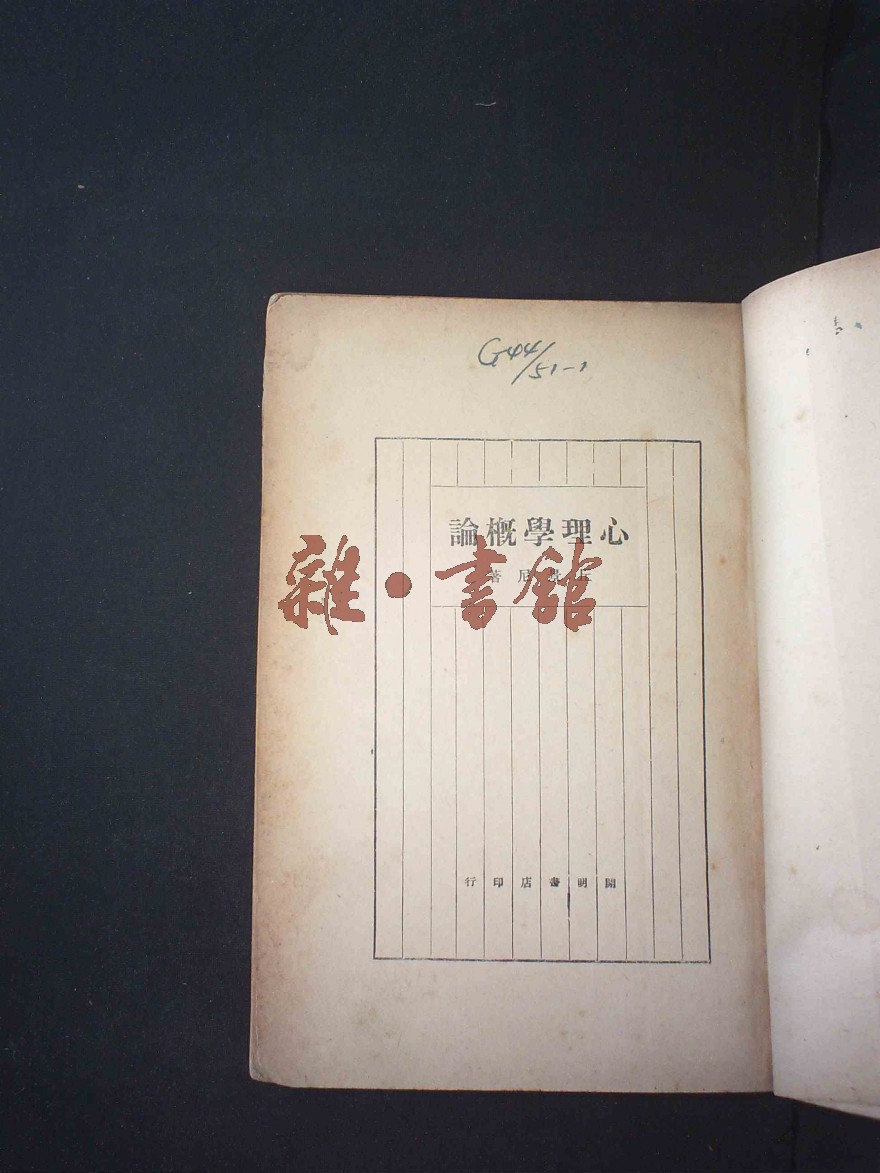 G44/51-1
心理學概論
尼著
雜·書館
開明書店印行